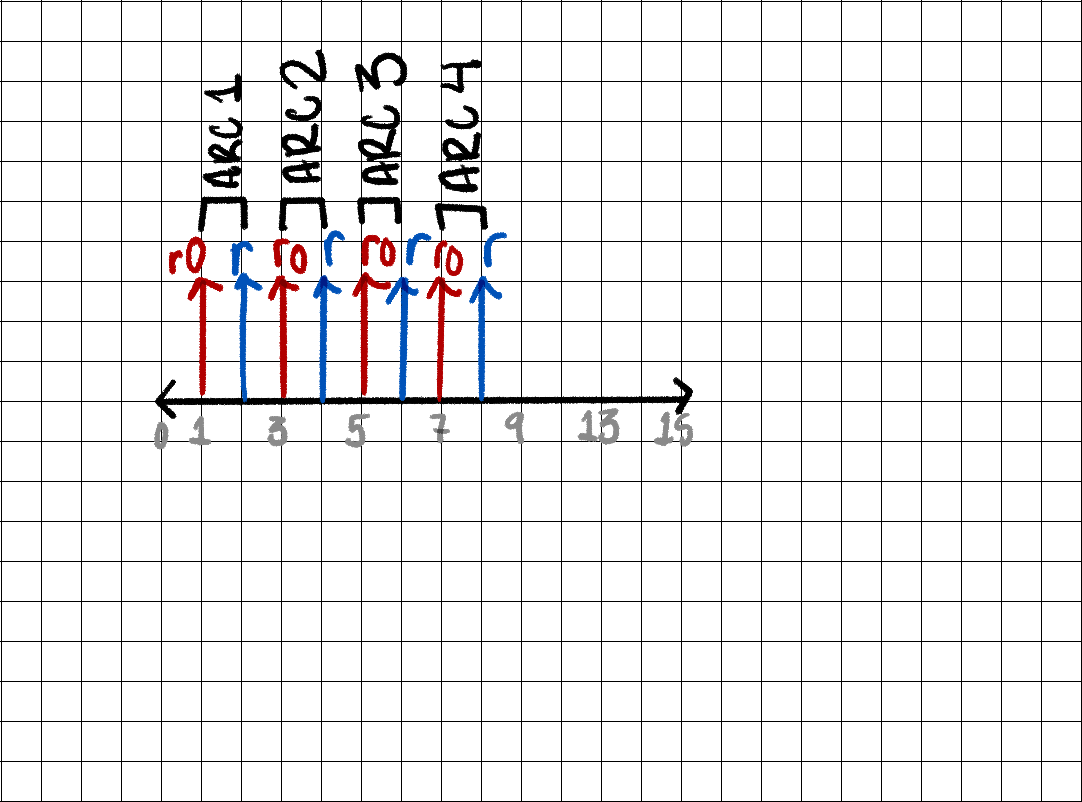 ARC 1 ARC 2 ARC 3 ARC 4
r0 r r0 r r0 r r0 r
0 1 3 5 7 9 13 15